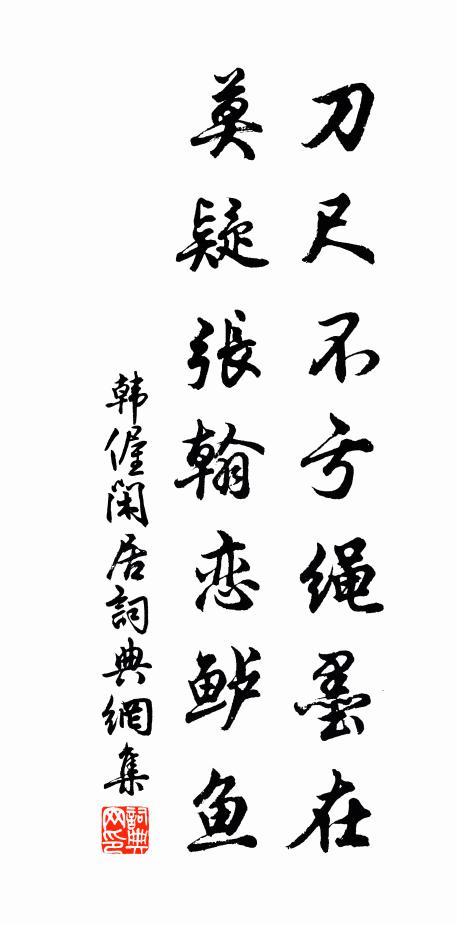 刀尺不亏绳墨在
莫疑張翰恋鲈鱼
韩偓閑居詞典網集
詞典网印